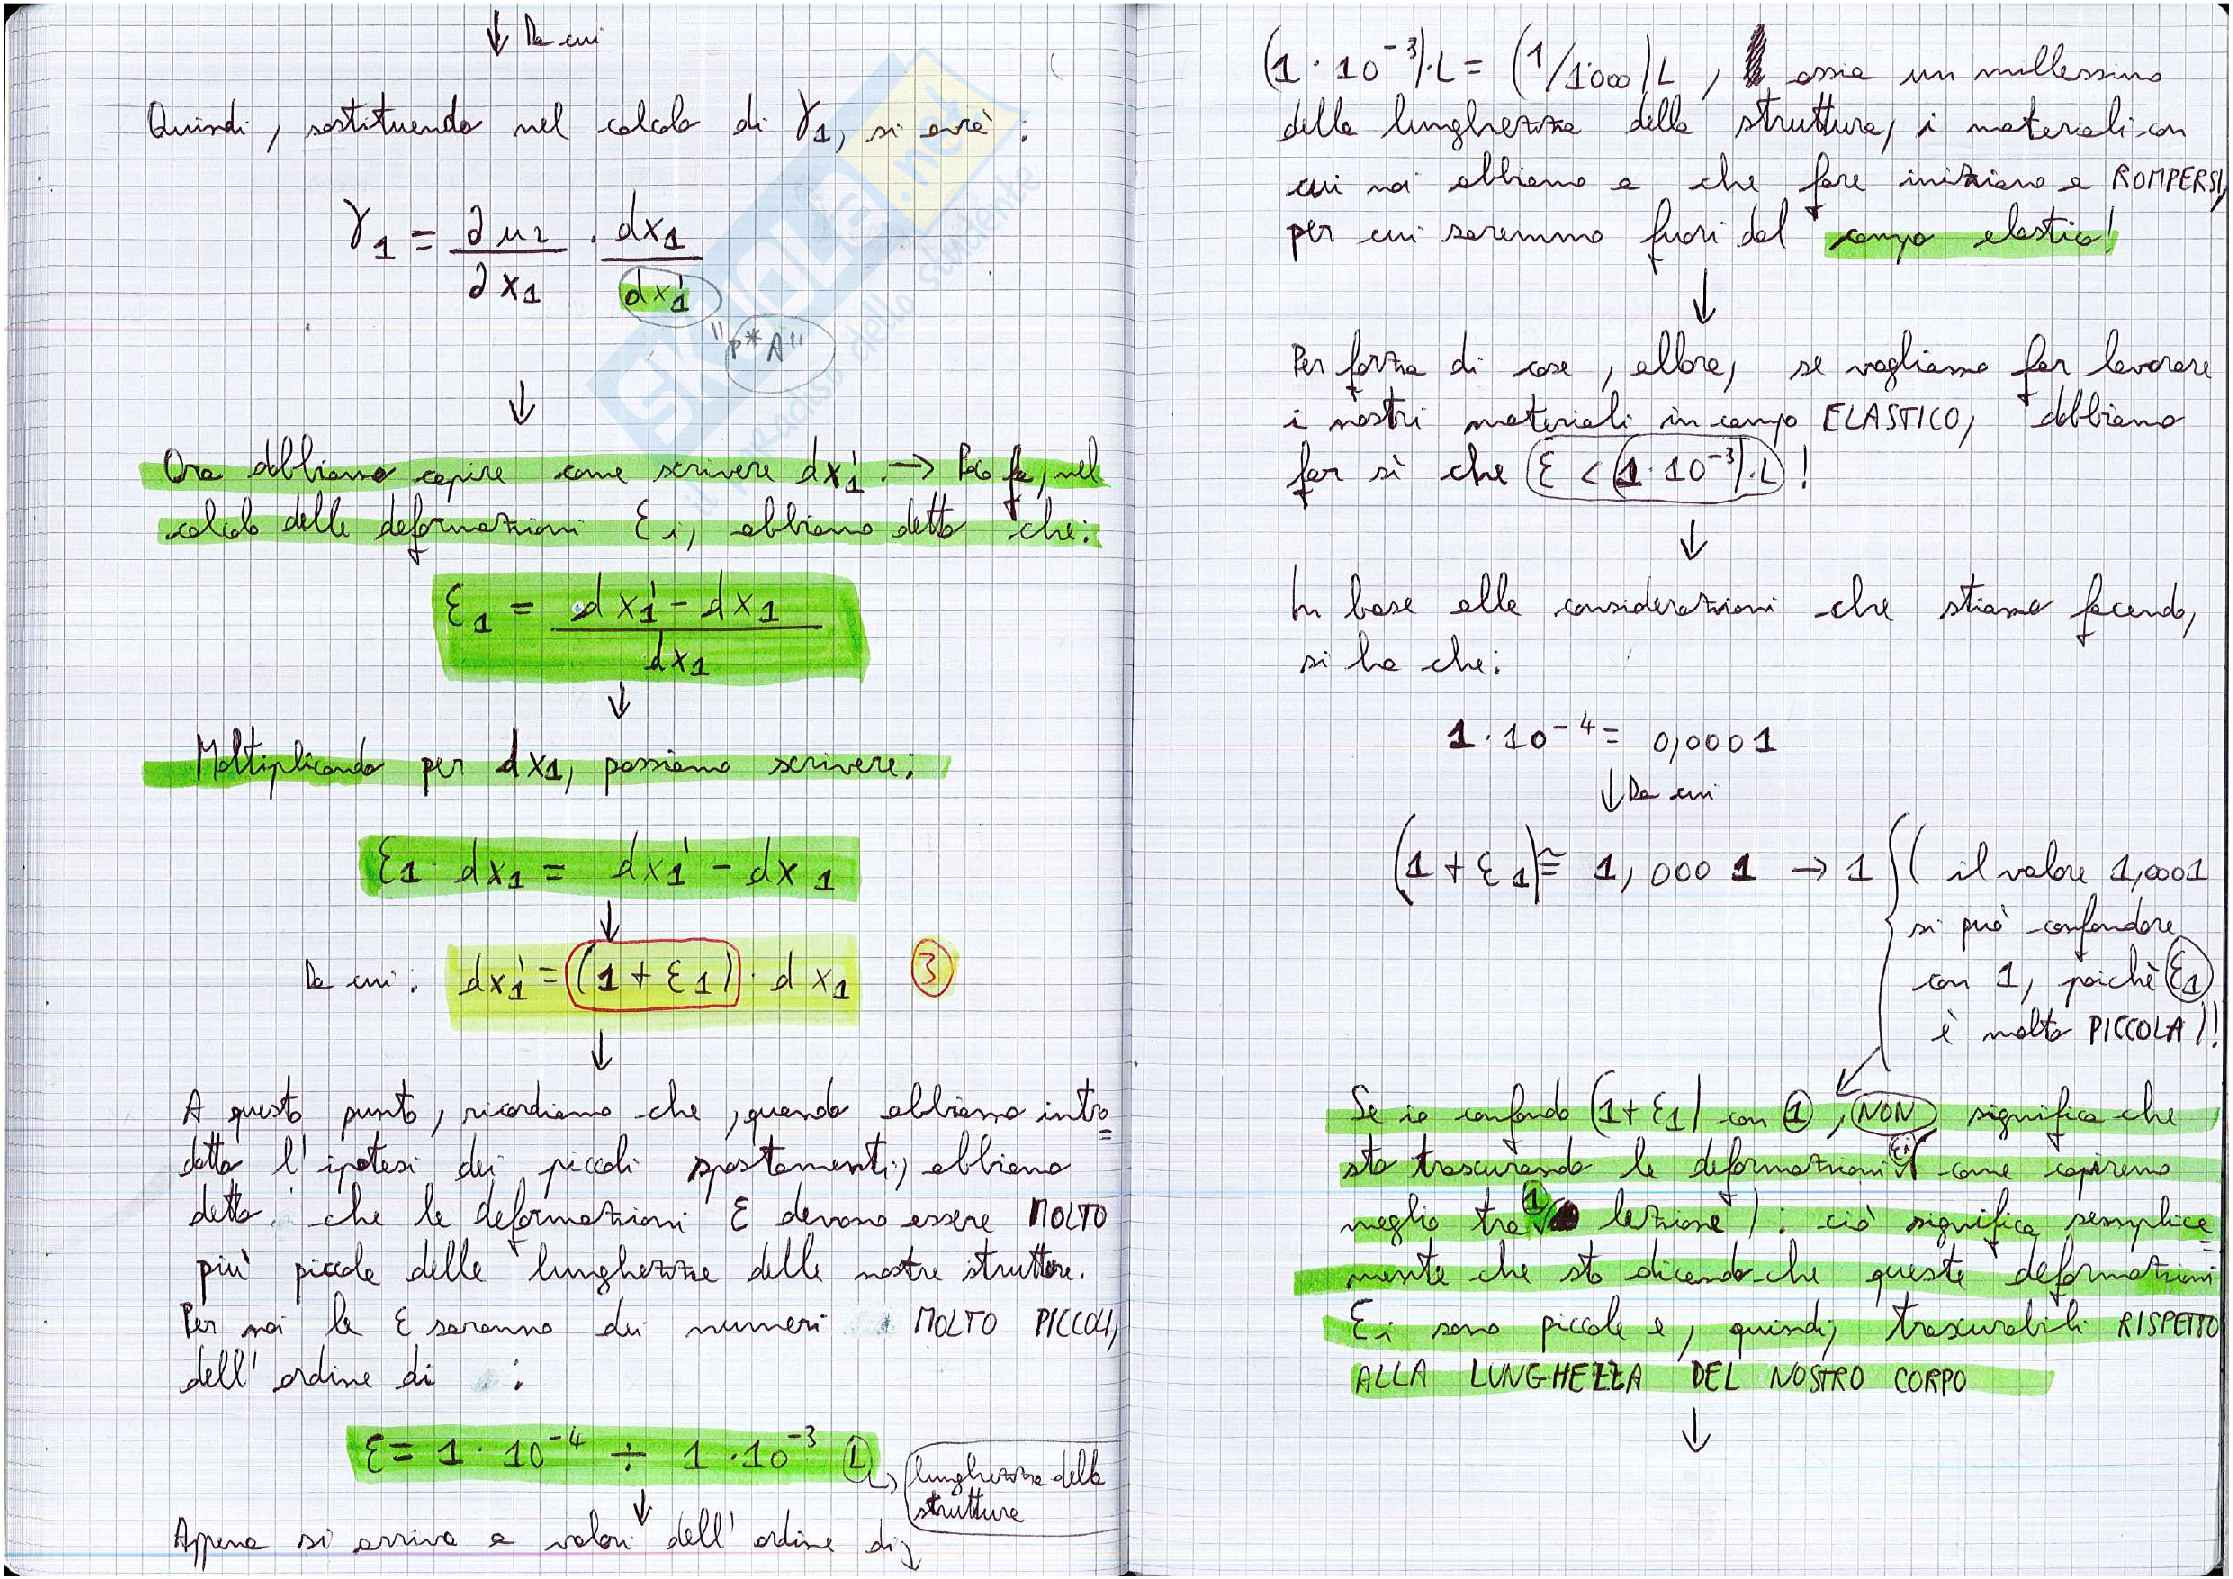 ↓ Da cui
Quindi, sostituendo nel calcolo di γ1, si avrà:
γ1 = ∂u2/∂x1 · dx1/dx1'
"P*A"
↓
Ora dobbiamo capire come scrivere dx1'. → Poco fa, nel
calcolo delle deformazioni εi, abbiamo detto che:
ε1 = (dx1' - dx1)/dx1
↓
Moltiplicando per dx1, possiamo scrivere:
ε1 · dx1 = dx1' - dx1
↓
Da cui: dx1' = (1 + ε1) · dx1 3
↓
A questo punto, ricordiamo che, quando abbiamo intro=
dotto l'ipotesi dei piccoli spostamenti, abbiamo
detto che le deformazioni ε devono essere MOLTO
più piccole delle lunghezze delle nostre strutture.
Per noi le ε saranno dei numeri MOLTO PICCOLI,
dell'ordine di :
ε = 1 · 10^-4 ÷ 1 · 10^-3 L
lunghezza della
struttura
↓
Appena si arriva a valori dell'ordine di
(1 · 10^-3) · L = (1/1000) L, ossia un millessimo
della lunghezza della struttura, i materiali con
cui noi abbiamo a che fare iniziano a ROMPERSI,
per cui saremmo fuori dal campo elastico!
↓
Per forza di cose, allora, se vogliamo far lavorare
i nostri materiali in campo ELASTICO, dobbiamo
far sì che ε < (1 · 10^-3) · L !
↓
In base alle considerazioni che stiamo facendo,
si ha che:
1 · 10^-4 = 0,0001
↓ Da cui
(1 + ε1) ≅ 1,0001 → 1 (il valore 1,0001
si può confondere
con 1, poichè ε1
è molto PICCOLA)!
Se io confondo (1 + ε1) con 1, NON significa che
sto trascurando le deformazioni εi (come capiremo
meglio tra 1 lezione): ciò significa semplice=
mente che sto dicendo che queste deformazioni
εi sono piccole e, quindi, trascurabili RISPETTO
ALLA LUNGHEZZA DEL NOSTRO CORPO
↓
SKUOLA.net
il paradiso dello studente